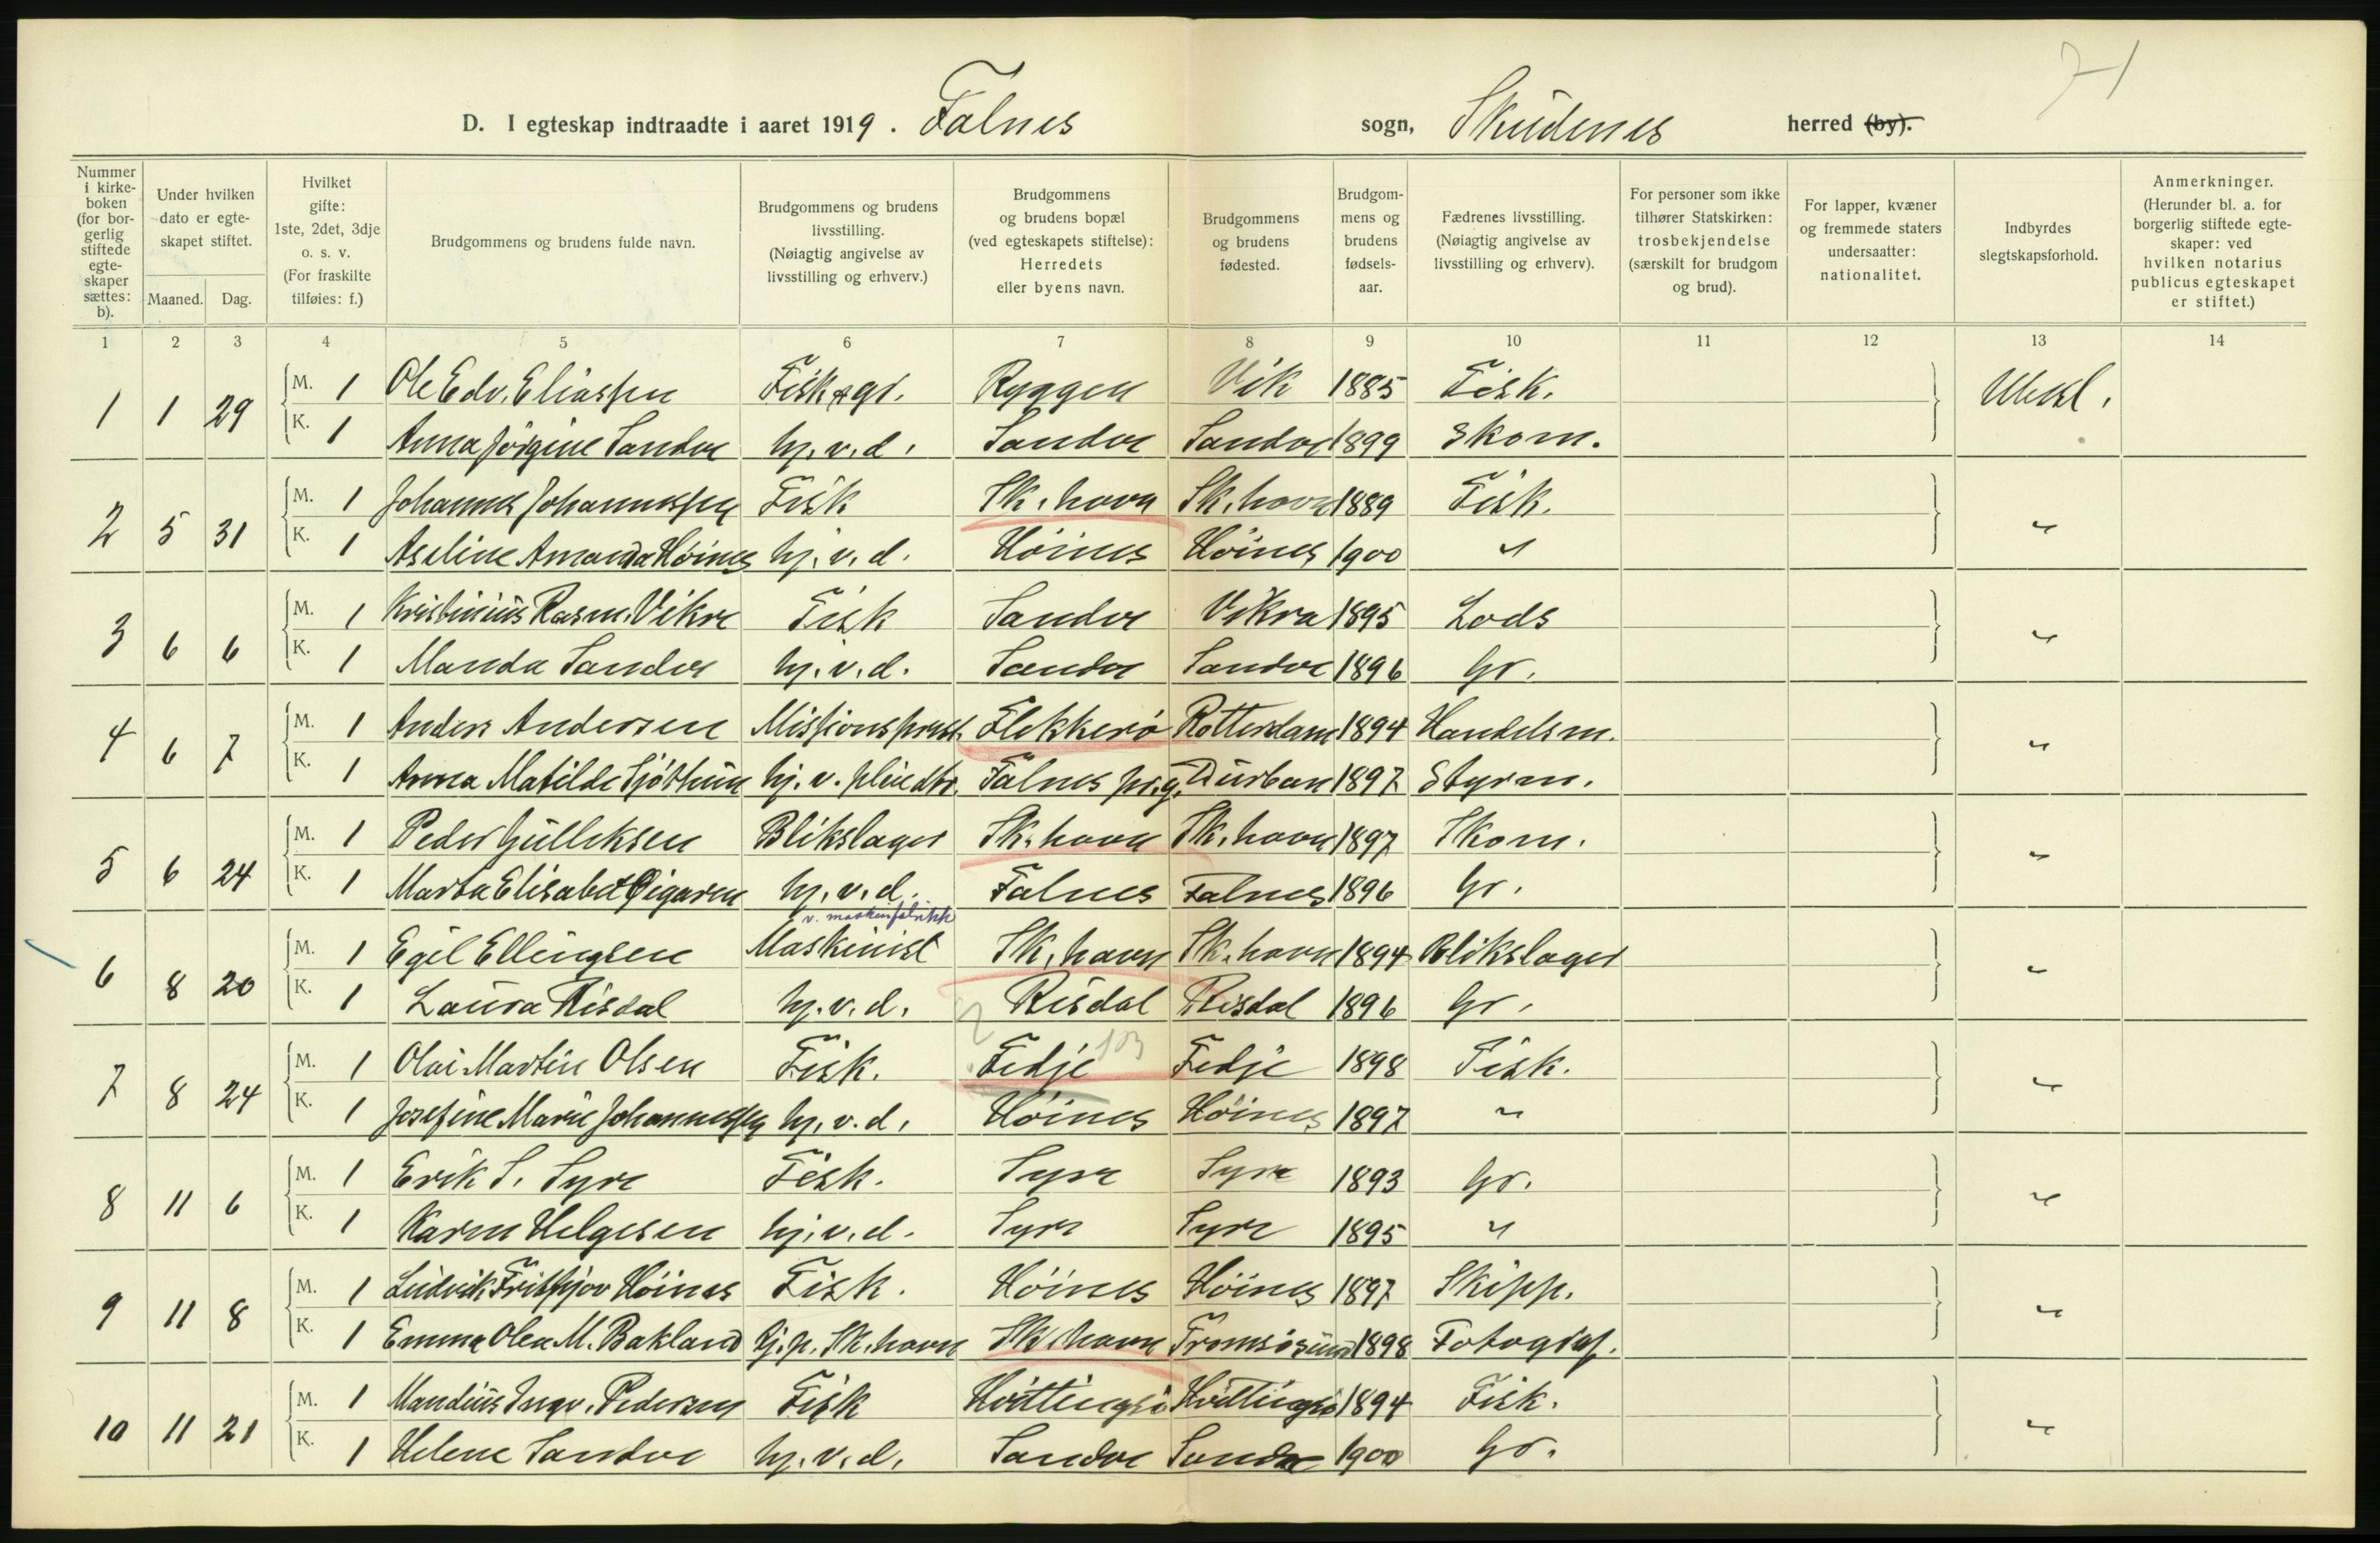 71
D. I egteskap indtraadte i aaret 1919. Falnes sogn, Skudenes herred (by).
Nummer i kirkeboken (for borgerlig stiftede egteskaper sættes: b).
Under hvilken dato er egteskapet stiftet.
Maaned. Dag.
Hvilket gifte: 1ste, 2det, 3dje o. s. v. (For fraskilte tilføies: f.)
Brudgommens og brudens fulde navn.
Brudgommens og brudens livsstilling. (Nøiagtig angivelse av livsstilling og erhverv.)
Brudgommens og brudens bopæl (ved egteskapets stiftelse): Herredets eller byens navn.
Brudgommens og brudens fødested.
Brudgommens og brudens fødselsaar.
Fædrenes livsstilling. (Nøiagtig angivelse av livsstilling og erhverv).
For personer som ikke tilhører Statskirken: trosbekjendelse (særskilt for brudgom og brud).
For lapper, kvæner og fremmede staters undersaatter: nationalitet.
Indbyrdes slegtskapsforhold.
Anmerkninger. (Herunder bl. a. for borgerlig stiftede egteskaper: ved hvilken notarius publicus egteskapet er stiftet.)
1 2 3 4 5 6 7 8 9 10 11 12 13 14
1 1 29 M. 1 Ole Edv. Eliassen Fisk & gr. Ryggen Vik 1885 Fisk. Ubesl.
K. 1 Anna Jørgine Sandve hj. v. d. Sandve Sandve 1899 Skom.
2 5 31 M. 1 Johannes Johannessen Fisk Sk.havn Sk.havn 1889 Fisk. "
K. 1 Aseline Amanda Höines hj. v. d. Höines Höines 1900 "
3 6 6 M. 1 Kristinius Rasm. Vikre Fisk Sandve Vikra 1895 Lods "
K. 1 Manda Sandve hj. v. d. Sandve Sandve 1896 Gr.
4 6 7 M. 1 Anders Andersen Missionsprest. Flekkerö Rotterdam 1894 Handelsm. "
K. 1 Anna Matilde Sjöthun hj. v. pleiedtr. Falnes pr.g. Durban 1897 Styrm.
5 6 24 M. 1 Peder Gulleksen Blikslager Sk.havn Sk.havn 1897 Skom. "
K. 1 Marta Elisabet Öigaren hj. v. d. Falnes Falnes 1896 Gr.
v. maskinfabrikk
6 8 20 M. 1 Egil Ellingsen Maskinist Sk.havn Sk.havn 1894 Blikslager "
K. 1 Laura Risdal hj. v. d. Risdal Risdal 1896 Gr.
7 8 24 M. 1 Olai Martin Olsen Fisk. Fedje Fedje 1898 Fisk. "
K. 1 Josefine Marie Johannessen hj. v. d. Höines Höines 1897 "
8 11 6 M. 1 Erik S. Syre Fisk. Syre Syre 1893 Gr. "
K. 1 Karen Helgesen hj. v. d. Syre Syre 1895 "
9 11 8 M. 1 Ludvik Frithjov Höines Fisk. Höines Höines 1897 Skipp. "
K. 1 Emma Olea M. Bakland hj. p. Sk.havn Sk.havn Tromsösund 1898 Fotograf.
10 11 21 M. 1 Mandius Ingv. Pedersen Fisk Hvittingsö Hvittingsö 1894 Fisk. "
K. 1 Helene Sandve hj. v. d. Sandve Sandve 1900 Gr.